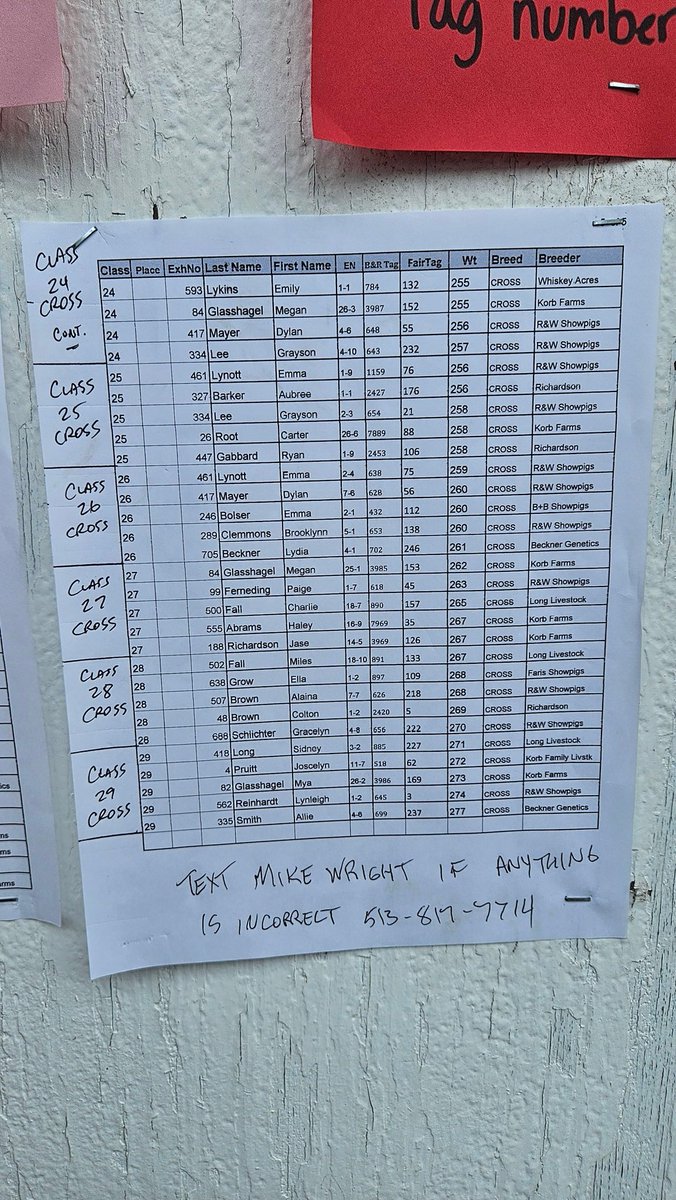 Tag number
5
Class Place ExhNo Last Name First Name EN B&R Tag FairTag Wt Breed Breeder
CLASS 24 CROSS CONT.
24 593 Lykins Emily 1-1 784 132 255 CROSS Whiskey Acres
24 84 Glasshagel Megan 26-3 3987 152 255 CROSS Korb Farms
24 417 Mayer Dylan 4-6 648 55 256 CROSS R&W Showpigs
24 334 Lee Grayson 4-10 643 232 257 CROSS R&W Showpigs
CLASS 25 CROSS
25 461 Lynott Emma 1-9 1159 76 256 CROSS R&W Showpigs
25 327 Barker Aubree 1-1 2427 176 256 CROSS Richardson
25 334 Lee Grayson 2-3 654 21 258 CROSS R&W Showpigs
25 26 Root Carter 26-6 7889 88 258 CROSS Korb Farms
25 447 Gabbard Ryan 1-9 2453 106 258 CROSS Richardson
CLASS 26 CROSS
26 461 Lynott Emma 2-4 638 75 259 CROSS R&W Showpigs
26 417 Mayer Dylan 7-6 628 56 260 CROSS R&W Showpigs
26 246 Bolser Emma 2-1 432 112 260 CROSS B+B Showpigs
26 289 Clemmons Brooklynn 5-1 653 138 260 CROSS R&W Showpigs
26 705 Beckner Lydia 4-1 702 246 261 CROSS Beckner Genetics
CLASS 27 CROSS
27 84 Glasshagel Megan 25-1 3985 153 262 CROSS Korb Farms
27 99 Ferneding Paige 1-7 618 45 263 CROSS R&W Showpigs
27 500 Fall Charlie 18-7 890 157 265 CROSS Long Livestock
27 555 Abrams Haley 16-9 7969 35 267 CROSS Korb Farms
27 188 Richardson Jase 14-5 3969 126 267 CROSS Korb Farms
CLASS 28 CROSS
28 502 Fall Miles 18-10 891 133 267 CROSS Long Livestock
28 638 Grow Ella 1-2 897 109 268 CROSS Faris Showpigs
28 507 Brown Alaina 7-7 626 218 268 CROSS R&W Showpigs
28 48 Brown Colton 1-2 2420 5 269 CROSS Richardson
28 686 Schlichter Gracelyn 4-8 656 222 270 CROSS R&W Showpigs
CLASS 29 CROSS
29 418 Long Sidney 3-2 885 227 271 CROSS Long Livestock
29 4 Pruitt Joscelyn 11-7 518 62 272 CROSS Korb Family Livstk
29 82 Glasshagel Mya 26-2 3986 169 273 CROSS Korb Farms
29 562 Reinhardt Lynleigh 1-2 645 3 274 CROSS R&W Showpigs
29 335 Smith Allie 4-6 699 237 277 CROSS Beckner Genetics
TEXT MIKE WRIGHT IF ANYTHING
IS INCORRECT 513-817-7714